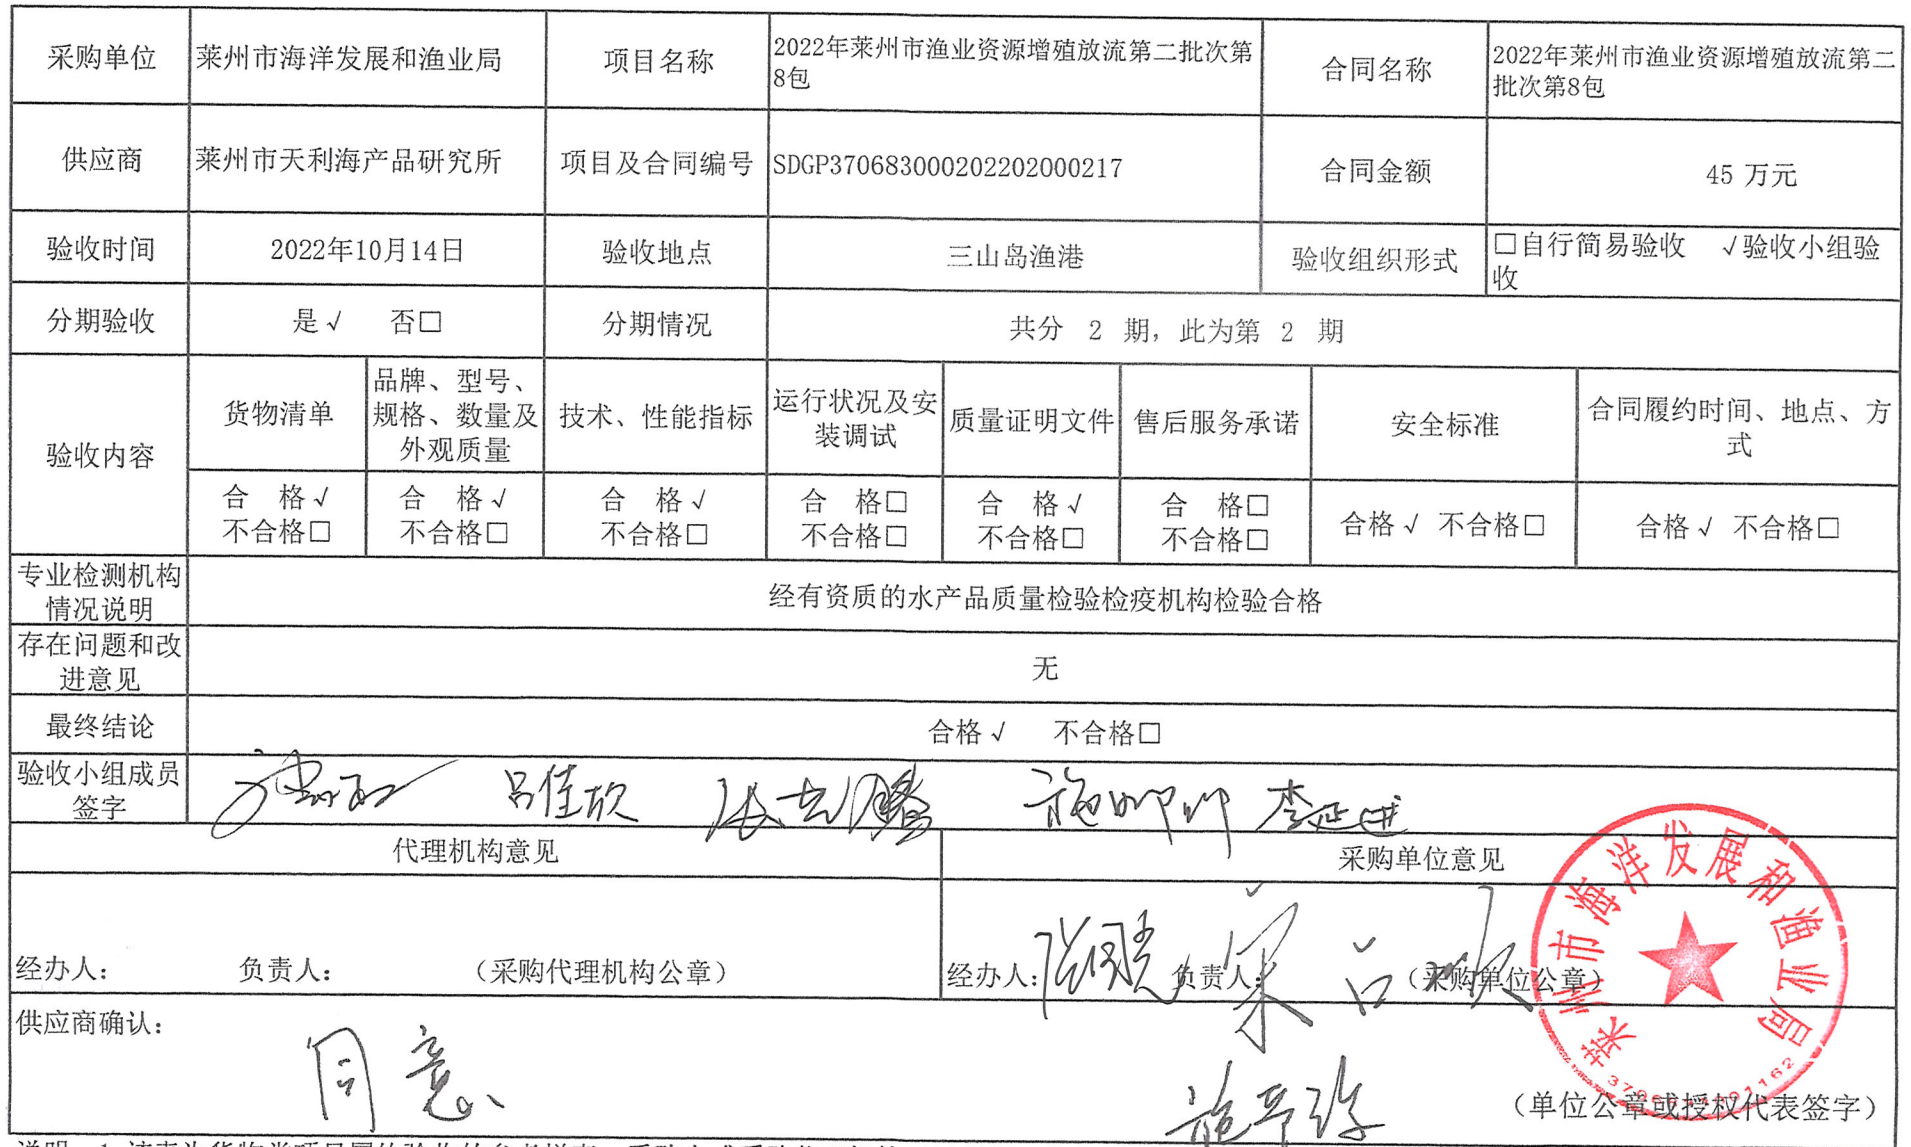 采购单位 莱州市海洋发展和渔业局 项目名称 2022年莱州市渔业资源增殖放流第二批次第8包 合同名称 2022年莱州市渔业资源增殖放流第二批次第8包
供应商 莱州市天利海产品研究所 项目及合同编号 SDGP370683000202202000217 合同金额 45 万元
验收时间 2022年10月14日 验收地点 三山岛渔港 验收组织形式 □自行简易验收 √验收小组验收
分期验收 是√ 否□ 分期情况 共分 2 期，此为第 2 期
验收内容 货物清单 品牌、型号、规格、数量及外观质量 技术、性能指标 运行状况及安装调试 质量证明文件 售后服务承诺 安全标准 合同履约时间、地点、方式
合 格√ 合 格√ 合 格√ 合 格□ 合 格√ 合 格□ 合格√ 不合格□ 合格√ 不合格□
不合格□ 不合格□ 不合格□ 不合格□ 不合格□ 不合格□
专业检测机构情况说明 经有资质的水产品质量检验检疫机构检验合格
存在问题和改进意见 无
最终结论 合格√ 不合格□
验收小组成员签字 吕佳欣 李延进
代理机构意见 采购单位意见
经办人： 负责人： （采购代理机构公章） 经办人： 负责人： （采购单位公章）
莱州市海洋发展和渔业局
供应商确认：
同意
（单位公章或授权代表签字）